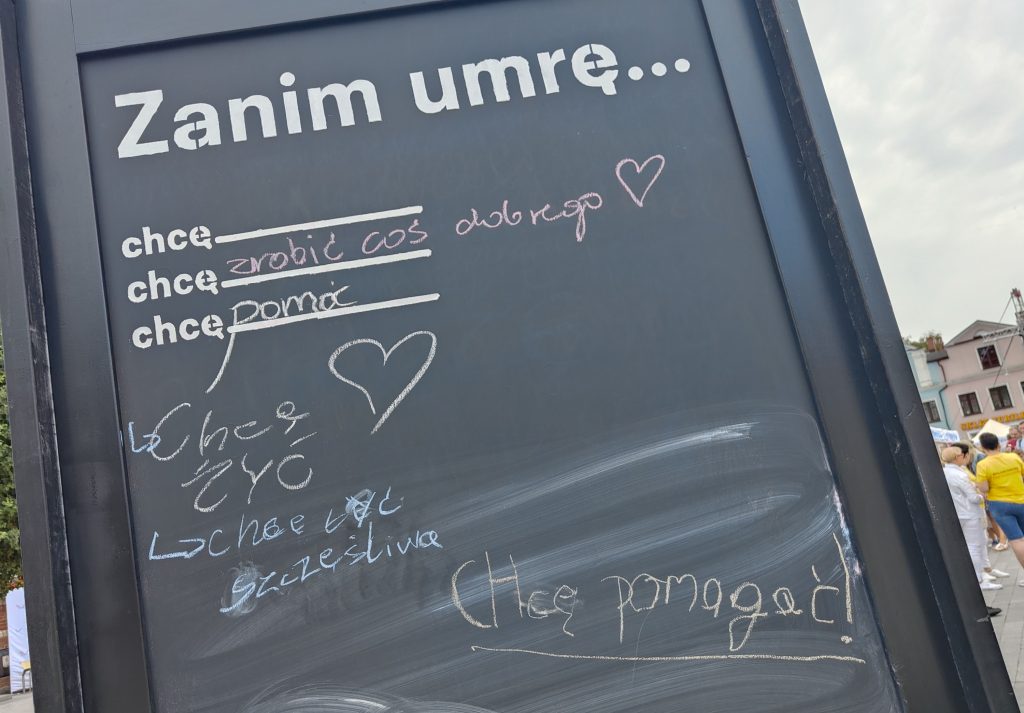 Zanim umrę...
chcę
chcę zrobić coś dobrego
chcę pomóc
Chcę
ŻYĆ
chcę być
szczęśliwa
Chcę pomagać!